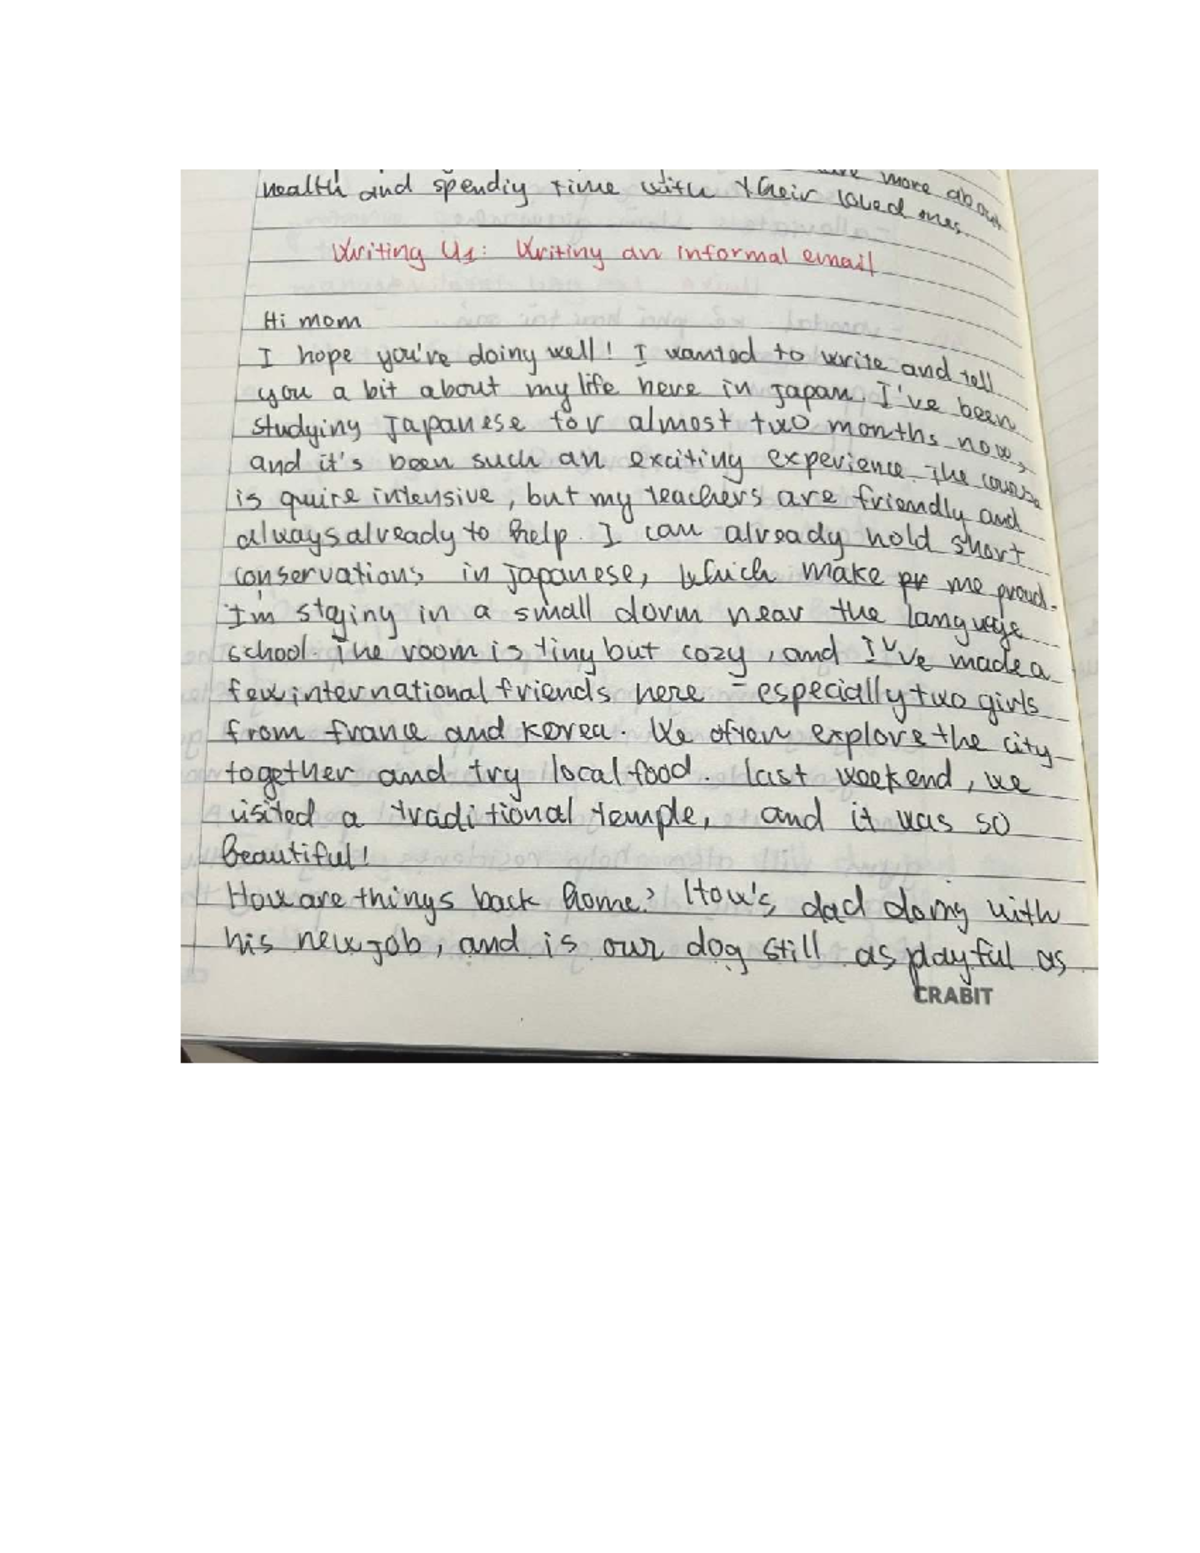 more about
health and spendiy time with their loved ones.
Writing U1: Writiny an informal email
Hi mom
I hope you're doiny well! I wanted to write and tell
you a bit about my life here in Japan. I've been
studying Japanese for almost two months now,
and it's been such an exciting experience. The course
is quire intensive, but my teachers are friendly and
always already to help. I can already hold short
conservations in japanese, which make me proud.
I'm staying in a small dorm near the language
school. The room is tiny but cozy, and I've made a
few international friends here - especially two girls
from france and Korea. We often explore the city
together and try local food. last weekend, we
visited a traditional temple, and it was so
beautiful!
How are things back home? How's dad doing with
his new job, and is our dog still as playful as
CRABIT